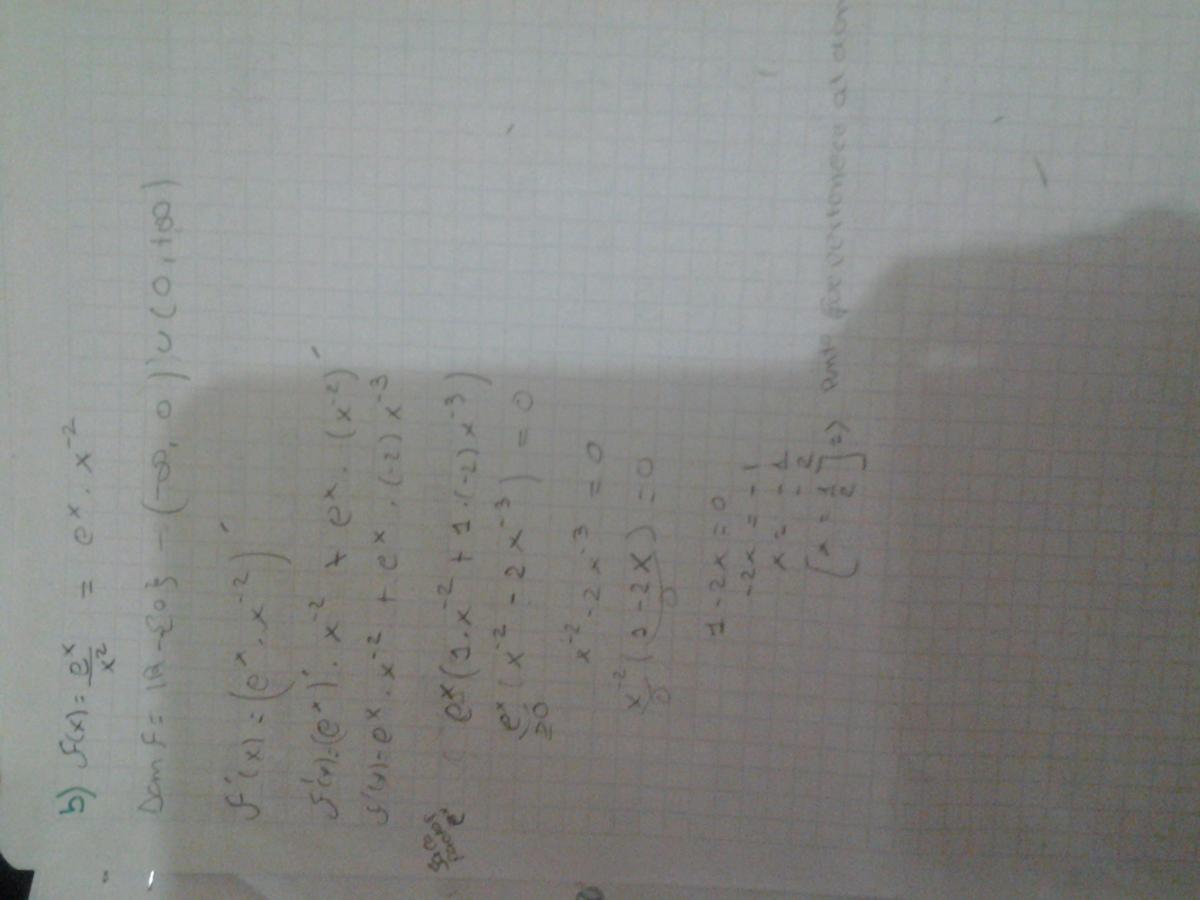 b) f(x) = e^x/x^2 = e^x · x^-2
Dom f = IR - {0} - (-∞, 0) ∪ (0, +∞)
f'(x) = (e^x · x^-2)'
f'(x) = (e^x)' · x^-2 + e^x · (x^-2)'
f'(x) = e^x · x^-2 + e^x · (-2) x^-3
e^x (1 · x^-2 + 1 · (-2) x^-3)
e^x (x^-2 - 2x^-3) = 0
x^-2 - 2x^-3 = 0
x^-2 (1 - 2x) = 0
0 0
1 - 2x = 0
-2x = -1
x = -1/-2
[x = 1/2] =>
al dom